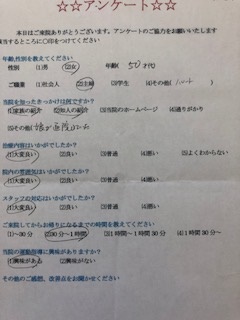 ☆☆アンケート☆☆
本日はご来院ありがとうございます。アンケートのご協力をお願いいたします
該当するところに○印をつけてください
年齢,性別を教えてください
性別 (1)男 (2)女 年齢( 50才代
ご職業 (1)社会人 (2)主婦 (3)学生 (4)その他( パート )
当院を知ったきっかけは何ですか?
(1)家族の紹介 (2)知人の紹介 (3)当院のホームページ (4)通りがかり
(5)その他(
治療内容はいかがでしたか
(1)大変良い (2)良い (3)普通 (4)悪い (5)よくわからない
院内の雰囲気はいかがでしたか
(1)大変良い (2)良い (3)普通 (4)悪い
スタッフの対応はいかがでしたか
(1)大変良い (2)良い (3)普通 (4)悪い
ご来院からお帰りになるまでの時間を教えてください
(1)~30分 (2)30分~1時間 (3)1時間~1時間30分 (4)1時間30分~
当院の運動指導に興味がありますか?
(1)興味がある (2)興味がない
その他のご感想、改善点をお聞かせください